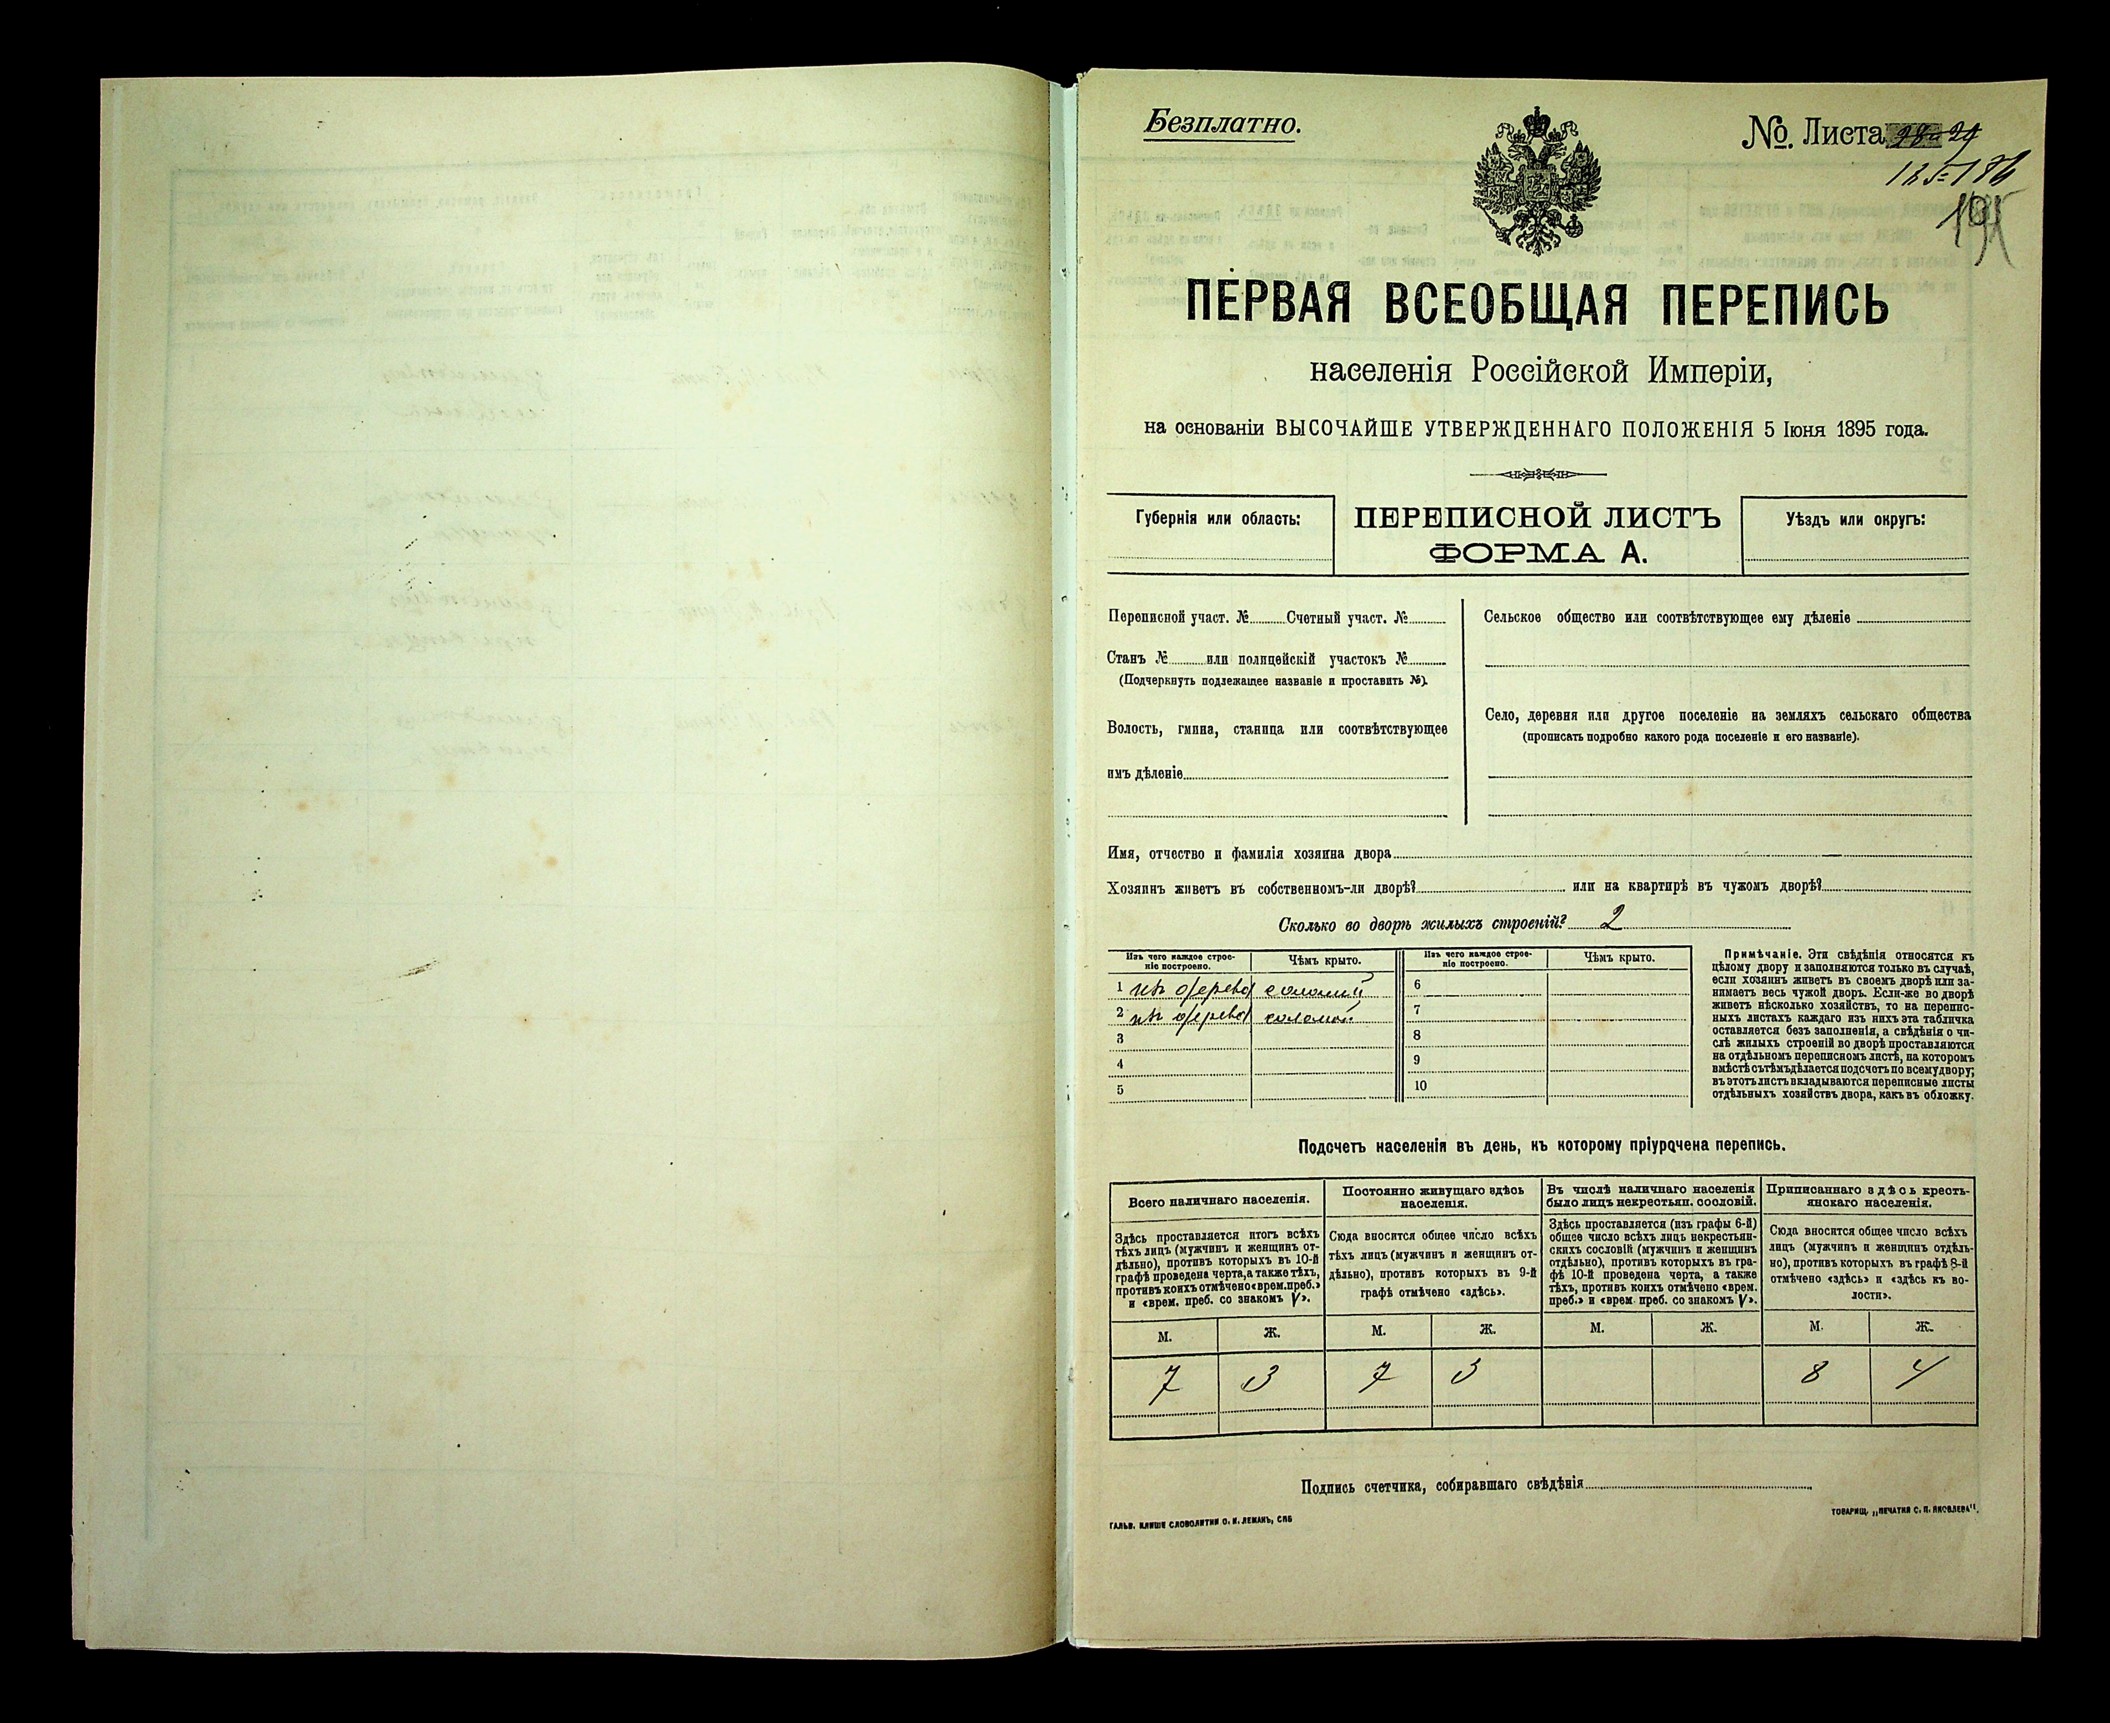 Безплатно.
№. Листа
195
ПЕРВАЯ ВСЕОБЩАЯ ПЕРЕПИСЬ
населенія Россійской Имперіи,
на основаніи ВЫСОЧАЙШЕ УТВЕРЖДЕННАГО ПОЛОЖЕНІЯ 5 Іюня 1895 года.
Губернія или область:
ПЕРЕПИСНОЙ ЛИСТЪ
ФОРМА А.
Уѣздъ или округъ:
Переписной участ. № Счетный участ. №
Станъ № или полицейскій участокъ №
(Подчеркнуть подлежащее названіе и проставить №).
Волость, гмина, станица или соотвѣтствующее
имъ дѣленіе
Сельское общество или соотвѣтствующее ему дѣленіе
Село, деревня или другое поселеніе на земляхъ сельскаго общества
(прописать подробно какого рода поселеніе и его названіе).
Имя, отчество и фамилія хозяина двора
Хозяинъ живетъ въ собственномъ-ли дворѣ? или на квартирѣ въ чужомъ дворѣ?
Сколько во дворѣ жилыхъ строеній? 2
Изъ чего каждое строе-
ніе построено.
Чѣмъ крыто.
Изъ чего каждое строе-
ніе построено.
Чѣмъ крыто.
1 изъ дерева соломой
2 изъ дерева соломой
3
4
5
6
7
8
9
10
Примѣчаніе. Эти свѣдѣнія относятся къ
цѣлому двору и заполняются только въ случаѣ,
если хозяинъ живетъ въ своемъ дворѣ или за-
нимаетъ весь чужой дворъ. Если-же во дворѣ
живетъ нѣсколько хозяйствъ, то на перепис-
ныхъ листахъ каждаго изъ нихъ эта табличка
оставляется безъ заполненія, а свѣдѣнія о чи-
слѣ жилыхъ строеній во дворѣ проставляются
на отдѣльномъ переписномъ листѣ, на которомъ
вмѣстѣ съ тѣмъ дѣлается подсчетъ по всему двору;
въ этотъ листъ вкладываются переписные листы
отдѣльныхъ хозяйствъ двора, какъ въ обложку.
Подсчетъ населенія въ день, къ которому пріурочена перепись.
Всего наличнаго населенія.
Здѣсь проставляется итогъ всѣхъ
тѣхъ лицъ (мужчинъ и женщинъ от-
дѣльно), противъ которыхъ въ 10-й
графѣ проведена черта, а также тѣхъ,
противъ коихъ отмѣчено «врем. преб.»
и «врем. преб. со знакомъ V».
Постоянно живущаго здѣсь
населенія.
Сюда вносится общее число всѣхъ
тѣхъ лицъ (мужчинъ и женщинъ от-
дѣльно), противъ которыхъ въ 9-й
графѣ отмѣчено «здѣсь».
Въ числѣ наличнаго населенія
было лицъ некрестьян. сословій.
Здѣсь проставляется (изъ графы 6-й)
общее число всѣхъ лицъ некрестьян-
скихъ сословій (мужчинъ и женщинъ
отдѣльно), противъ которыхъ въ гра-
фѣ 10-й проведена черта, а также
тѣхъ, противъ коихъ отмѣчено «врем.
преб.» и «врем. преб. со знакомъ V».
Приписаннаго здѣсь кресть-
янскаго населенія.
Сюда вносится общее число всѣхъ
лицъ (мужчинъ и женщинъ отдѣль-
но), противъ которыхъ въ графѣ 8-й
отмѣчено «здѣсь» и «здѣсь къ во-
лости».
М. Ж. М. Ж. М. Ж. М. Ж.
7 3 7 3 8 4
Подпись счетчика, собиравшаго свѣдѣнія
ГАЛЬВ. КЛИШЕ СЛОВОЛИТНИ О. И. ЛЕМАНЪ, СПБ
ТОВАРИЩ. „ПЕЧАТНЯ С. П. ЯКОВЛЕВА".